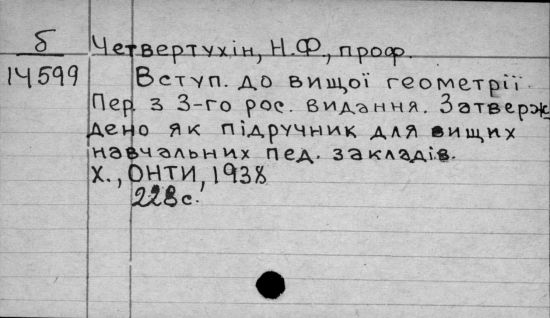 б
14599
Четвертухін, Н.Ф., проф.
Вступ. до вищої геометрії.
Пер. з 3-го рос. видання. Затверж
дено як підручник для вищих
навчальних пед. закладів.
Х., ОНТИ, 1938
228 с.